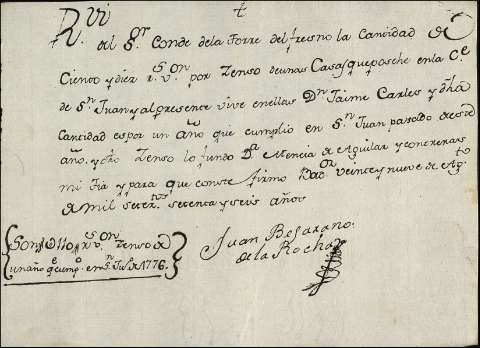 †
Rvi
del Sor. Conde dela Torre del fresno la Cantidad de
Ciento y diez rs. von. por Zenso de unas Casas que poshe en la Ce.
de Sn. Juan y al presente vive en ellas Dn. Jaime Carles y dha
Cantidad es por un año que cumplio en Sn. Juan pasado de este
año. y dho Zenso lo fundo Da. Mencia de Aguilar y
mi tia y para que conste firmo Bad.oz veinte y nueve de Ag.to
de mil setez.tos setenta y seis años
Juan Bejarano
de la Rocha
Son 110 rs. von. Zenso de
un año qe. cumpo. en Sn. Jun. de 1776.